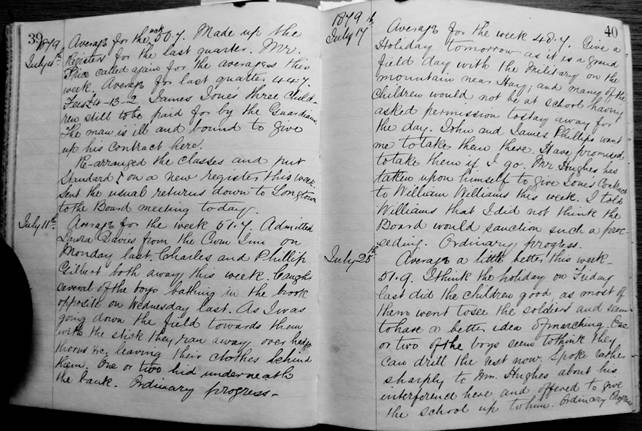 39
1879
July 4th
Average for the week 50.7. Made up the
Registers for the last quarter. Mr.
Price called again for the averages this
week. Average for last quarter 44.7.
Fees £4-13-2 James Jones three child-
ren still to be paid for by the Guardians
The man is ill and bound to give
up his contract here.
Re-arranged the Classes and put
Standard on a new register this week.
Sent the usual returns down to Longtown
to the Board meeting today.
July 11th
Average for the week 51.7. Admitted
Laura Davies from the Cwm Inn on
Monday last. Charles and Phillip
Gilbert both away this week. Caught
several of the boys bathing in the brook
opposite on Wednesday last. As I was
going down the field towards them
with the stick they ran away, over hedge
leaving their clothes behind
them. One or two hid underneath
the bank. Ordinary progress.
40
1879
July 17th
Average for the week 48.7. Give a
Holiday tomorrow as it is a grand
field day with the Military on the
mountain near Hay, and many of the
children would not be at school having
asked permission to stay away for
the day. John and James Phillips want
me to take them there. Have promised
to take them if I go. Mr Hughes has
taken upon himself to give Jones Contract
to William Williams this week. I told
Williams that I did not think the
Board would sanction such a pro-
ceding. Ordinary progress.
July 25th
Average a little better this week
51.9. I think the holiday on Friday
last did the children good as most of
them went to see the soldiers and seem
to have a better idea of marching. One
or two of the boys seem to think they
can drill the rest now. Spoke rather
sharply to Wm. Hughes about his
interference here and offered to give
the school up to him. Ordinary Progress